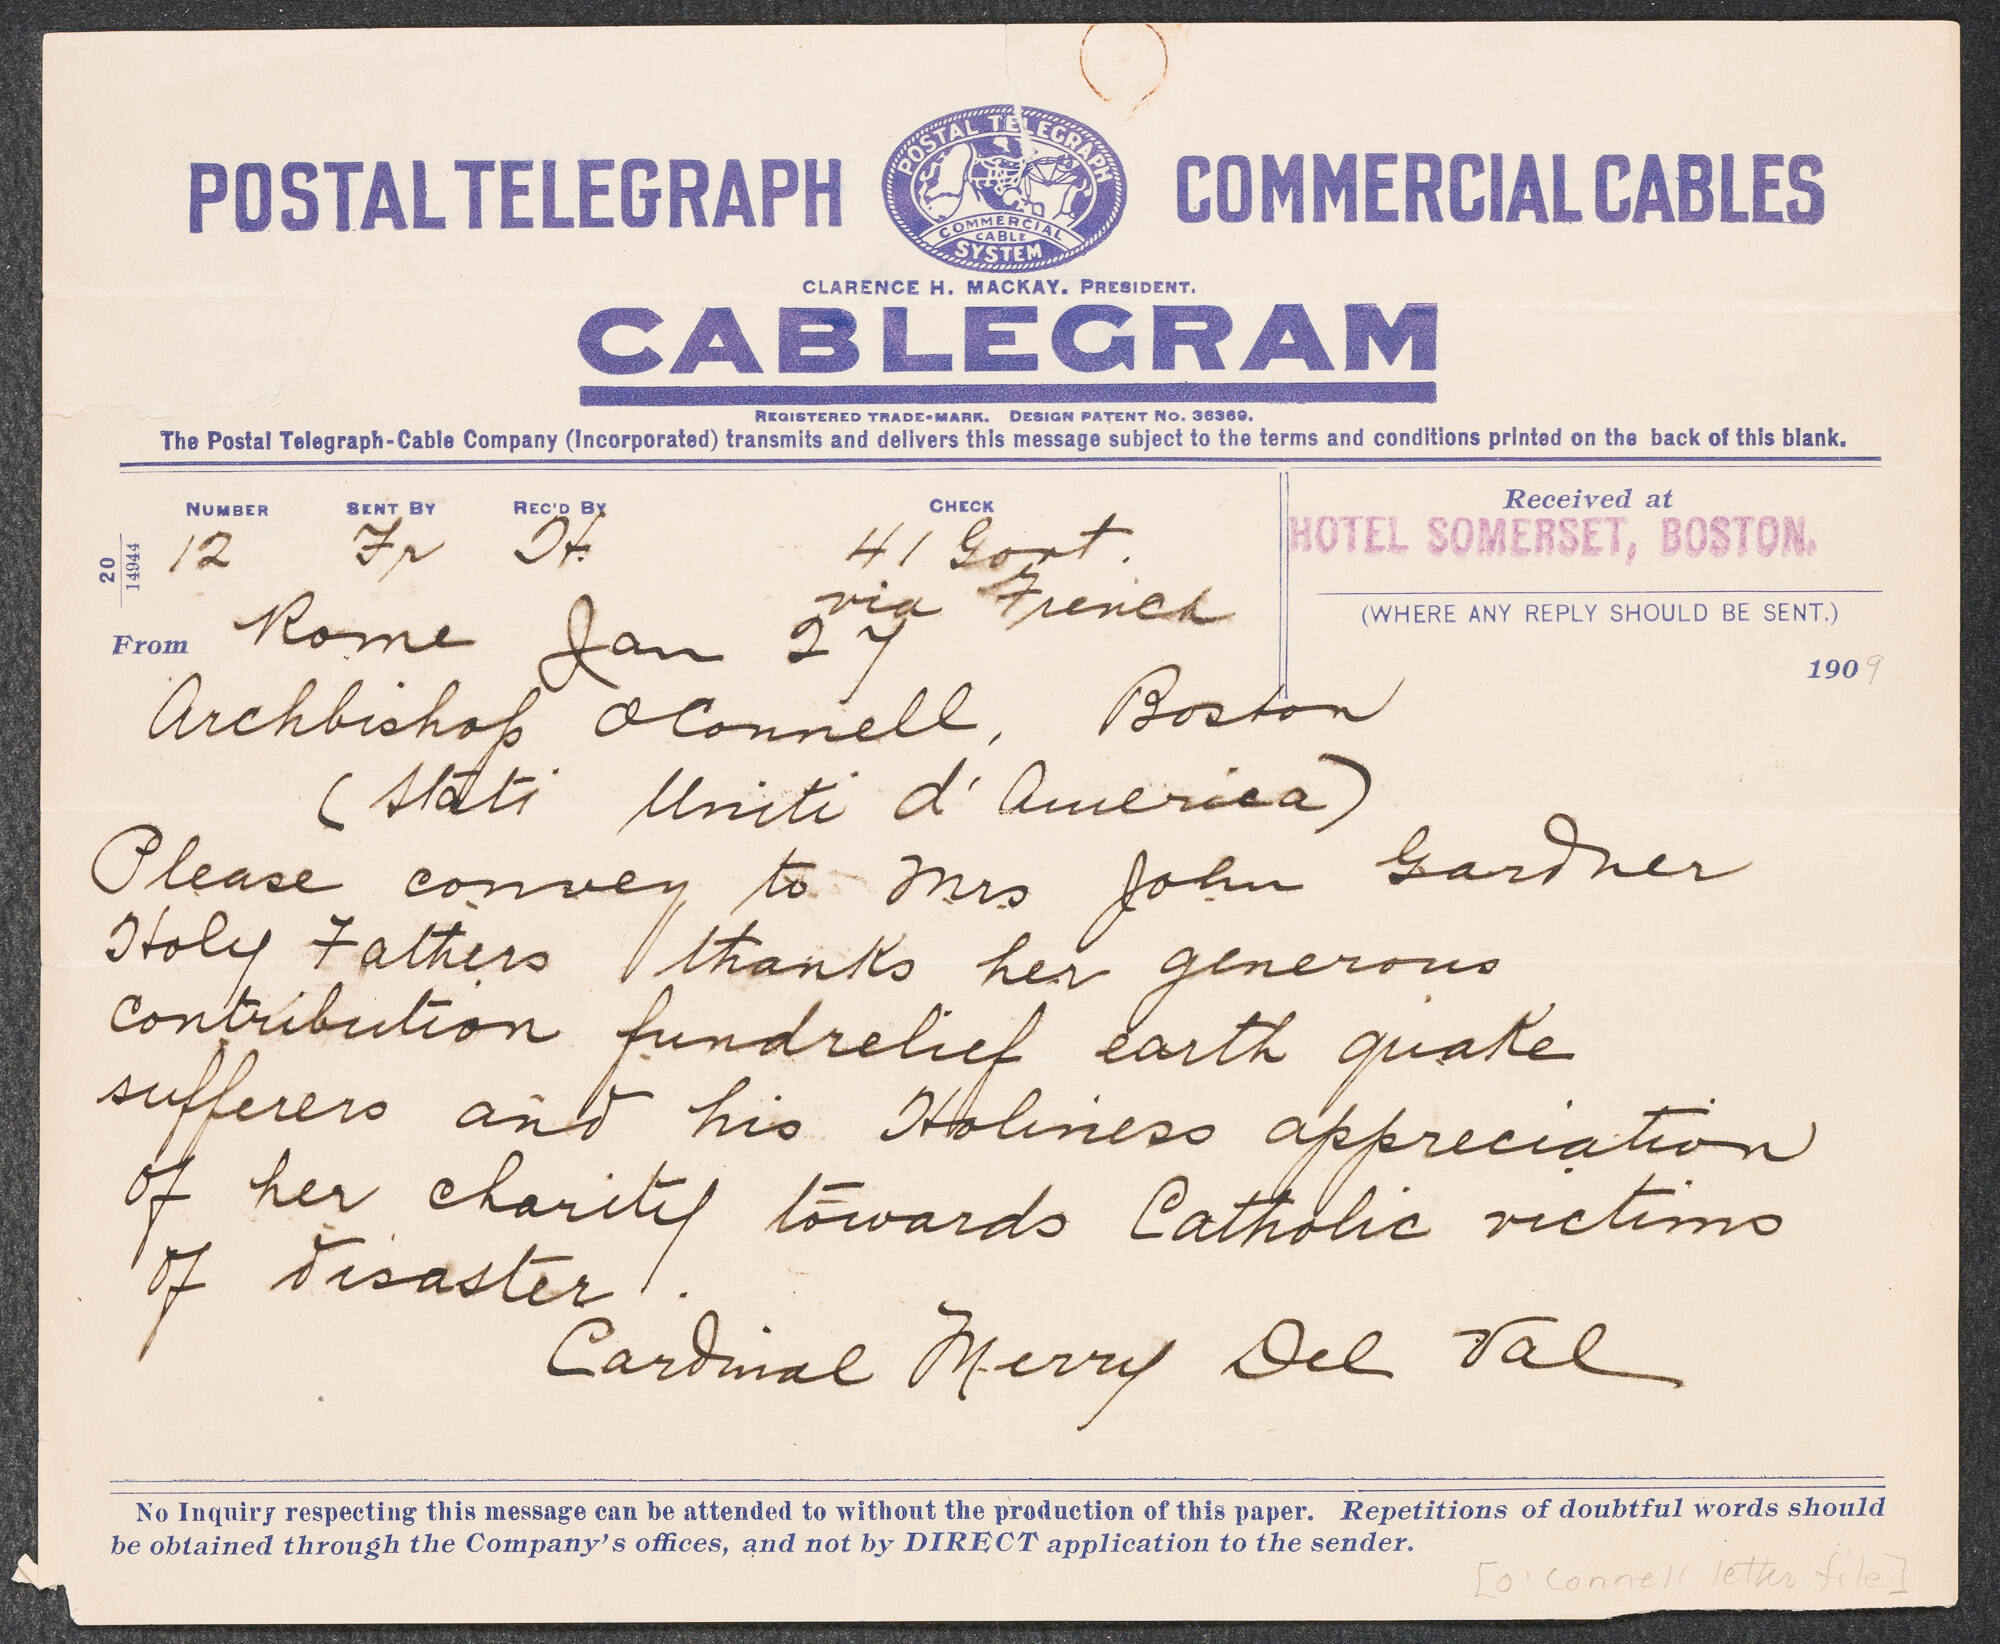 POSTAL TELEGRAPH COMMERCIAL CABLES
POSTAL TELEGRAPH
COMMERCIAL
CABLE
SYSTEM
CLARENCE H. MACKAY. PRESIDENT.
CABLEGRAM
REGISTERED TRADE-MARK. DESIGN PATENT No. 36369.
The Postal Telegraph-Cable Company (Incorporated) transmits and delivers this message subject to the terms and conditions printed on the back of this blank.
NUMBER SENT BY REC'D BY CHECK
Received at
HOTEL SOMERSET, BOSTON.
(WHERE ANY REPLY SHOULD BE SENT.)
1909
20
14944
12 Fr H 41 Govt.
via French
From Rome Jan 27
Archbishop OConnell, Boston
(Stati Uniti d'America)
Please convey to Mrs John Gardner
Holy Fathers thanks her generous
contribution fundrelief earth quake
sufferers and his Holiness appreciation
of her charity towards Catholic victims
of disaster.
Cardinal Merry Del Val
No Inquiry respecting this message can be attended to without the production of this paper. Repetitions of doubtful words should
be obtained through the Company's offices, and not by DIRECT application to the sender.
[O'Connell letter file]